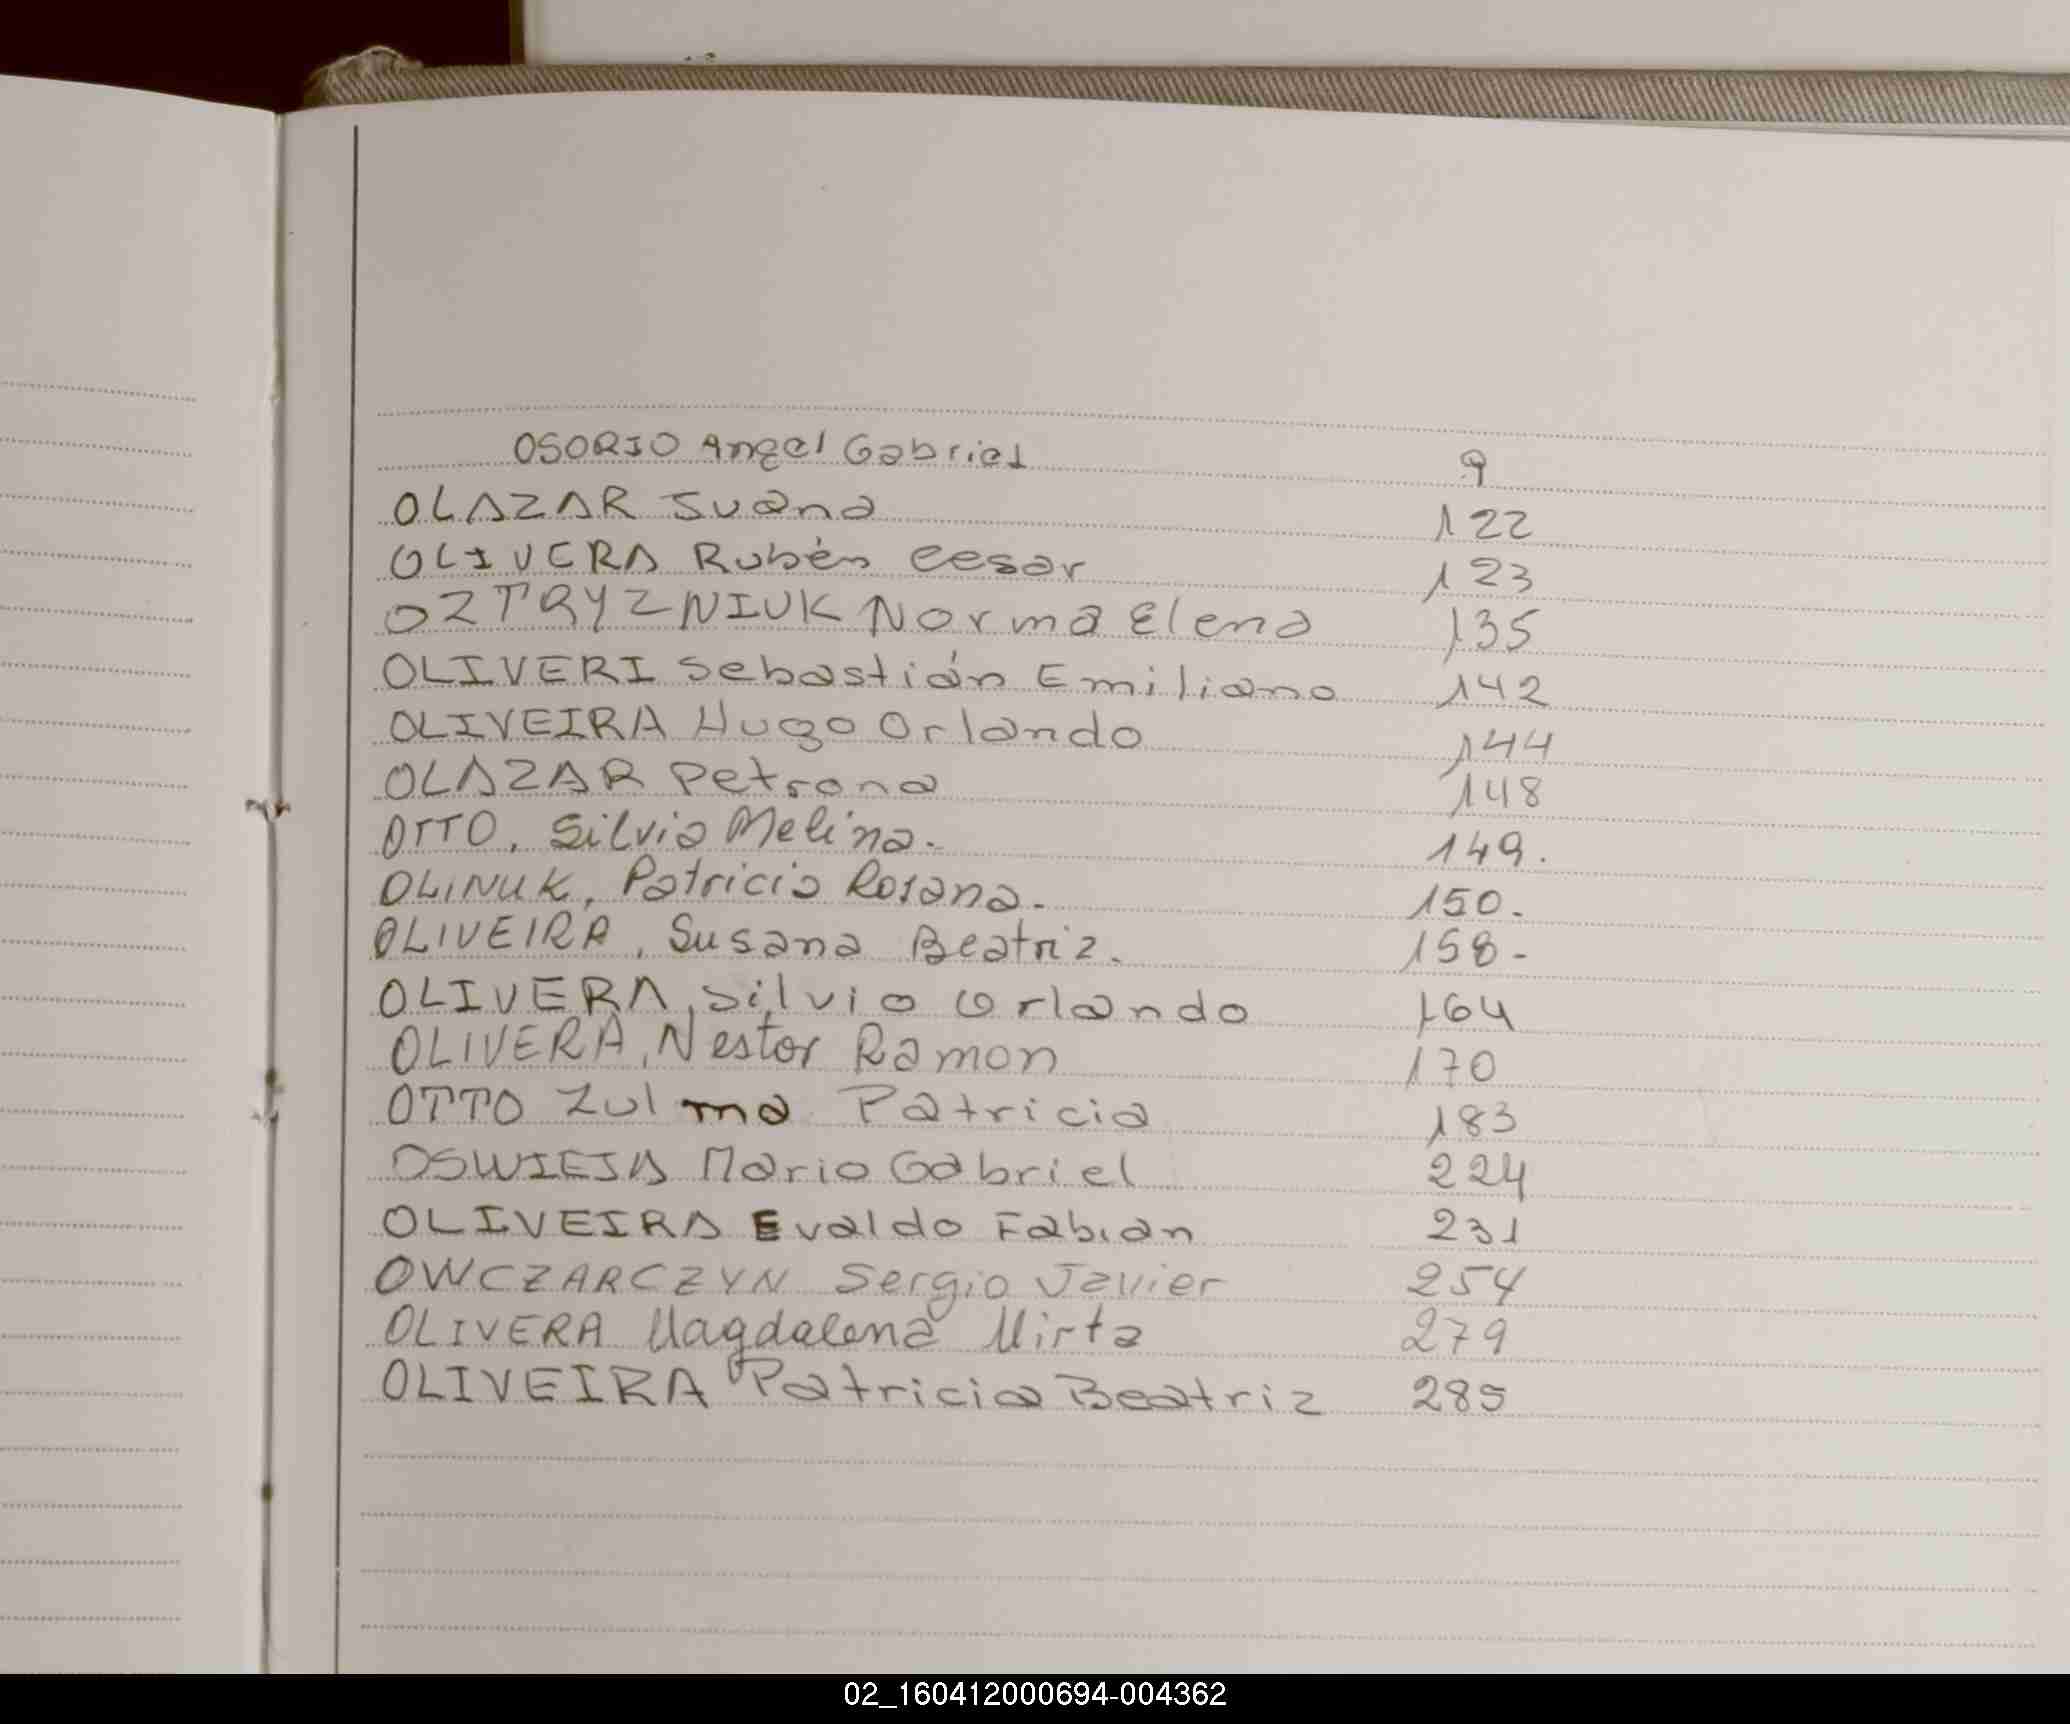 OSORIO Angel Gabriel 9
OLAZAR Juana 122
OLIVERA Rubén Cesar 123
OZTRYZNIUK Norma Elena 135
OLIVERI Sebastián Emiliano 142
OLIVEIRA Hugo Orlando 144
OLAZAR Petrona 148
OTTO, Silvia Melina. 149.
OLINUK, Patricia Rosana. 150.
OLIVEIRA, Susana Beatriz. 158-
OLIVERA, Silvio Orlando 164
OLIVERA, Nestor Ramon 170
OTTO Zulma Patricia 183
OSWIEJA Mario Gabriel 224
OLIVEIRA Evaldo Fabian 231
OWCZARCZYN Sergio Javier 254
OLIVERA Magdalena Mirta 279
OLIVEIRA Patricia Beatriz 285
02_160412000694-004362